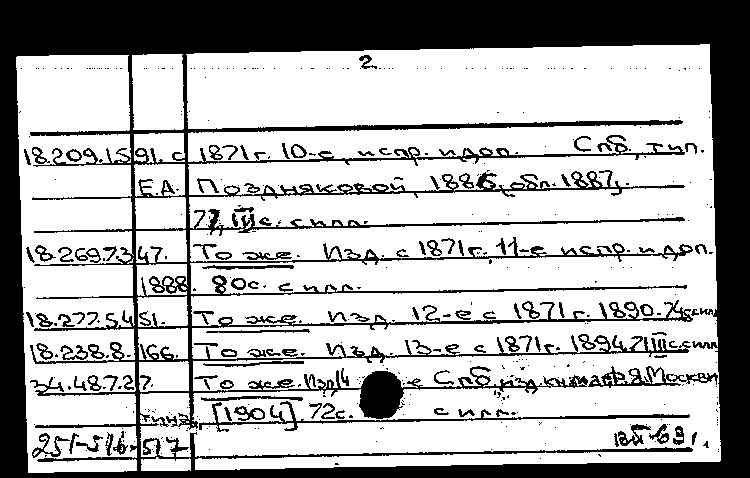 2
18.209.1591. с 1871 г. 10-е, испр. и доп. Спб, тип.
Е.А. Поздняковой, 1886, обл. 1887,
77, III с. с илл.
18.269.7.347. То же. Изд. с 1871 г. 11-е испр. и доп.
1888. 80с. с илл.
18.277.5.451. То же. Изд. 12-е с 1871 г. 1890. 74с. с илл
18.238.8.166. То же. Изд. 13-е с 1871 г. 1894. 71, III с. с илл
34.48.7.27. То же. Изд. 14-е Спб, изд. кн. маг. Я. Москви
тина, [1904]. 72с. с илл.
251-516-517